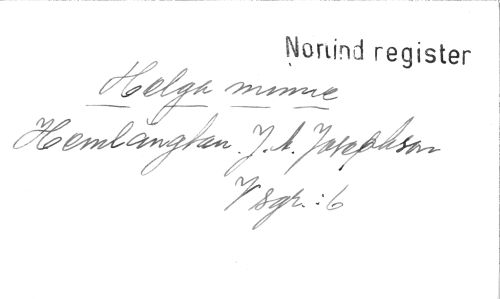 Norlind register
Helga minne
Hemlängtan. J. A. Josephson
Vsgr.: 6